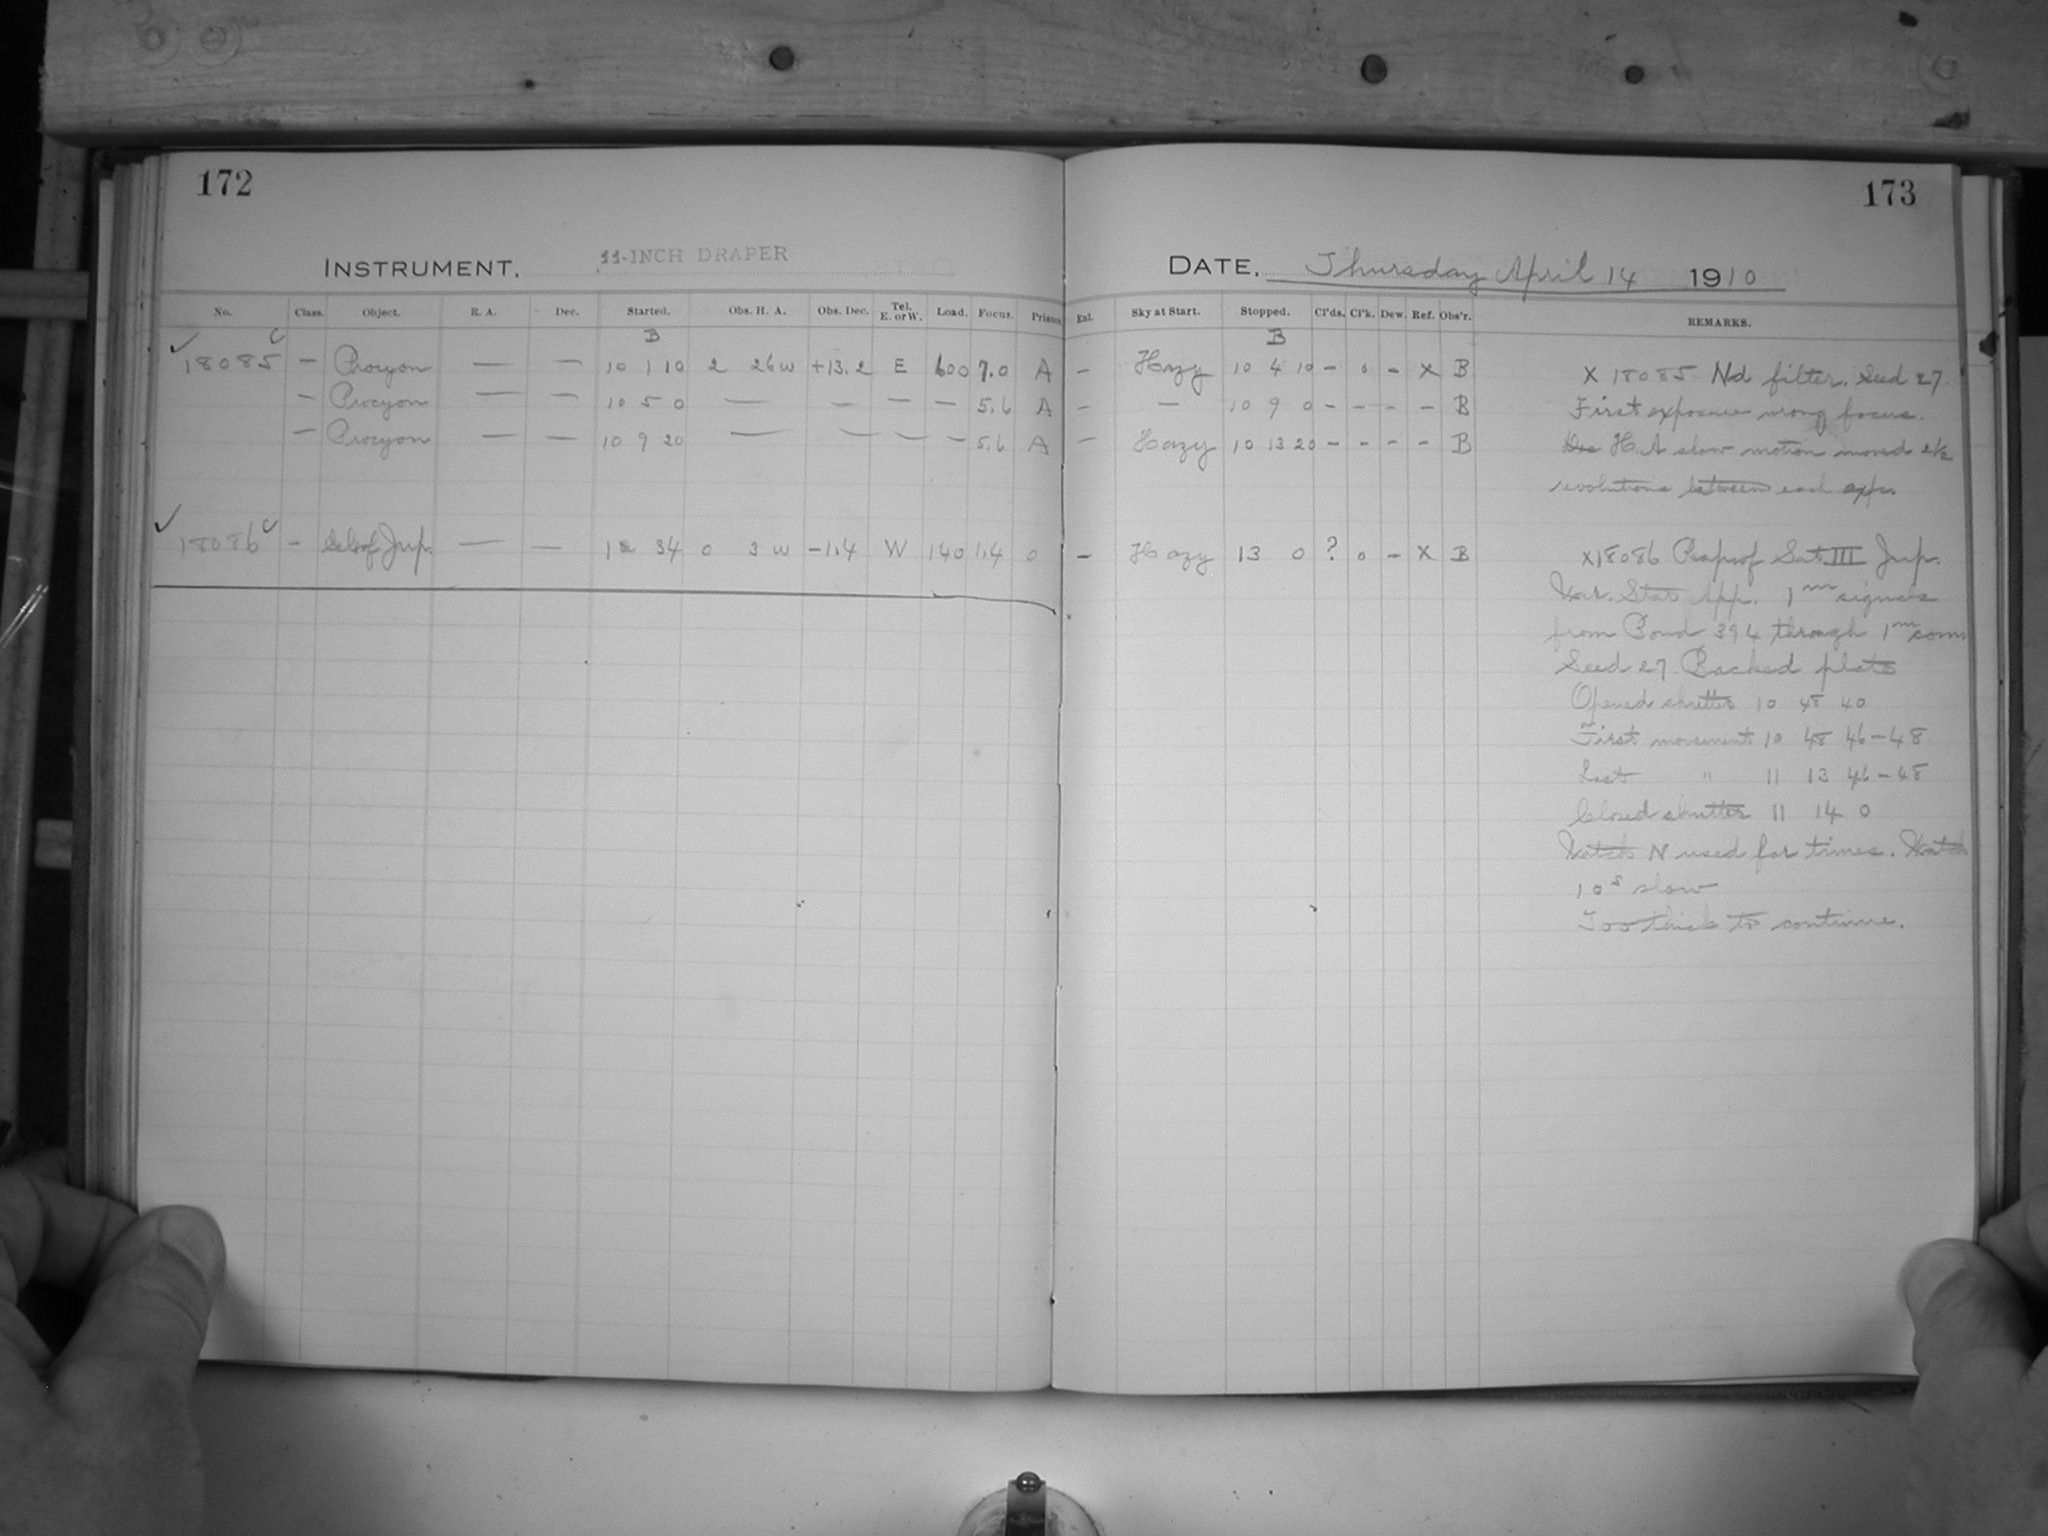 172
INSTRUMENT, 11-INCH DRAPER
No. Class. Object. R. A. Dec. Started. Obs. H. A. Obs. Dec. Tel. E. or W. Load. Focus. Prisms
B
✓ 18085 c — Procyon — — 10 1 10 2 26 w +13.2 E 600 7.0 A
— Procyon — — 10 5 0 — — — — 5.6 A
— Procyon — — 10 9 20 — — — — 5.6 A
✓ 18086 c — Ecl. of Jup. — — 12 34 0 3 w -1.4 W 140 1.4 0
173
DATE, Thursday April 14 1910
Enl. Sky at Start. Stopped. Cl'ds. Cl'k. Dew. Ref. Obs'r. REMARKS.
B
— Hazy 10 4 10 — 0 — X B X 18085 Nd filter. Seed 27.
— — 10 9 0 — — — — B First exposure wrong focus.
— Hazy 10 13 20 — — — — B H.A slow motion moved 2½
revolutions between each exp.
— Hazy 13 0 ? 0 — X B X 18086 Reap. of Sat III Jup.
Var. Star App. 1m signals
from Bond 394 through 1m com.
Seed 27 Backed plate
Opened shutter 10 48 40
First movement 10 48 46-48
Last " 11 13 46-48
Closed shutter 11 14 0
Watch N used for times. Watch
10s slow
Too thick to continue.